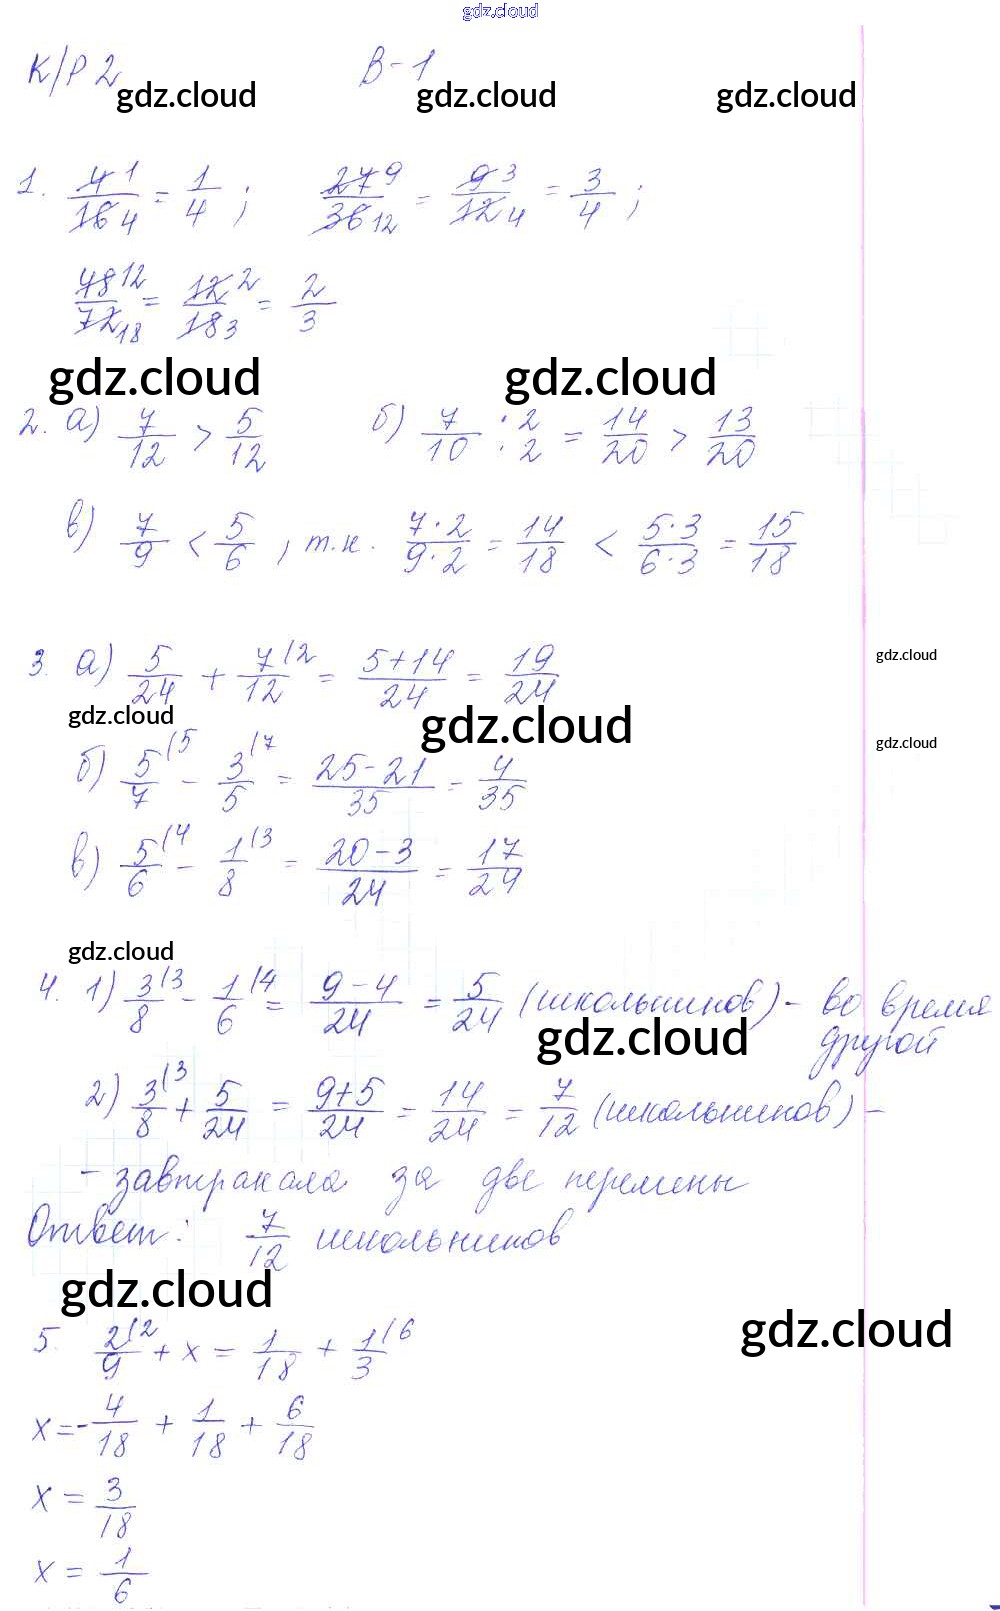 gdz.cloud
К/Р 2 В-1
gdz.cloud gdz.cloud gdz.cloud
1. 4 1/16 4 = 1/4 ; 27 9/36 12 = 9 3/12 4 = 3/4 ;
48 12/72 18 = 12 2/18 3 = 2/3
gdz.cloud gdz.cloud
2. а) 7/12 > 5/12 б) 7/10 : 2 : 2 = 14/20 > 13/20
в) 7/9 < 5/6 , т.к. 7·2/9·2 = 14/18 < 5·3/6·3 = 15/18
3. а) 5/24 + 7/12 (2 = 5+14/24 = 19/24
gdz.cloud
gdz.cloud gdz.cloud
б) 5/7 (5 - 3/5 (7 = 25-21/35 = 4/35
gdz.cloud
в) 5/6 (4 - 1/8 (3 = 20-3/24 = 17/24
gdz.cloud
4. 1) 3/8 (3 - 1/6 (4 = 9-4/24 = 5/24 (школьников) - во время
другой
gdz.cloud
2) 3/8 (3 + 5/24 = 9+5/24 = 14/24 = 7/12 (школьников) -
- завтракала за две перемены
Ответ: 7/12 школьников
gdz.cloud
gdz.cloud
5. 2/9 (2 + x = 1/18 + 1/3 (6
x = -4/18 + 1/18 + 6/18
x = 3/18
x = 1/6